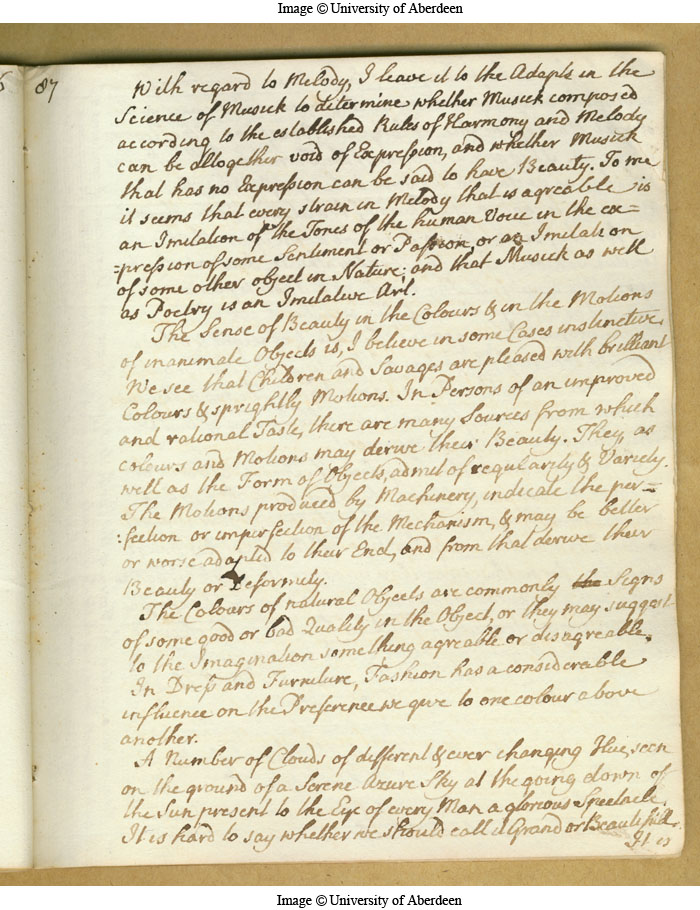 Image © University of Aberdeen
87
With regard to Melody, I leave it to the Adapts in the
Science of Musick to determine whether Musick composed
according to the established Rules of Harmony and Melody
can be alltogether void of Expression, and whether Musick
that has no Expression can be said to have Beauty. To me
it seems that every strain in Melody that is agreable is
an Imitation of the Tones of the human Voice in the ex=
=pression of some Sentiment or Passion, or an Imitation
of some other object in Nature; and that Musick as well
as Poetry is an Imitative Art.
The Sense of Beauty in the Colours & in the Motions
of inanimate Objects is, I believe in some Cases instinctive.
We see that Children and Savages are pleased with brilliant
Colours & sprightly Motions. In Persons of an improved
and rational Taste, there are many Sources from which
colours and Motions may derive their Beauty. They, as
well as the Form of Objects, admit of regularity & Variety.
The Motions produced by Machinery, indicate the per=
:fection or imperfection of the Mechanism, & may be better
or worse adapted to their End, and from that derive their
Beauty or Deformity.
The Colours of natural Objects are commonly the Signs
of some good or bad Quality in the Object, or they may suggest
to the Imagination something agreable or disagreable.
In Dress and Furniture, Fashion has a considerable
influence on the Preference we give to one colour above
another.
A Number of Clouds of different & ever changing Hue, seen
on the ground of a Serene Azure Sky at the going down of
the Sun present to the Eye of every Man a glorious Spectacle.
It is hard to say whether we should call it Grand or Beautifull.
It is
Image © University of Aberdeen